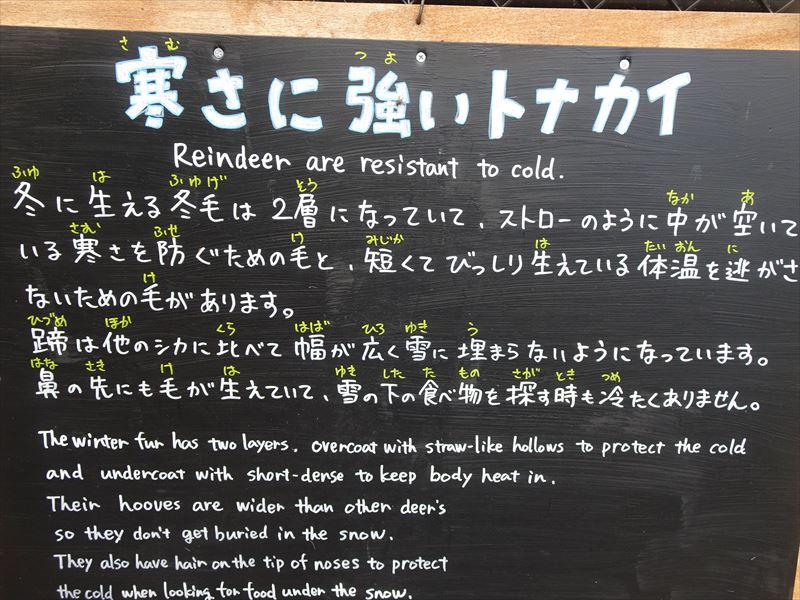 さむ つよ
寒さに強いトナカイ
Reindeer are resistant to cold.
ふゆ は ふゆげ そう なか あ
冬に生える冬毛は2層になっていて、ストローのように中が空いて
さむ ふせ け みじか は たいおん に
いる寒さを防ぐための毛と、短くてびっしり生えている体温を逃がさ
け
ないための毛があります。
ひづめ ほか くら はば ひろ ゆき う
蹄は他のシカに比べて幅が広く雪に埋まらないようになっています。
はな さき け は ゆき した た もの さが とき つめ
鼻の先にも毛が生えていて、雪の下の食べ物を探す時も冷たくありません。
The winter fur has two layers. overcoat with straw-like hollows to protect the cold
and undercoat with short-dense to keep body heat in.
Their hooves are wider than other deer's
so they don't get buried in the snow.
They also have hair on the tip of noses to protect
the cold when looking for food under the snow.